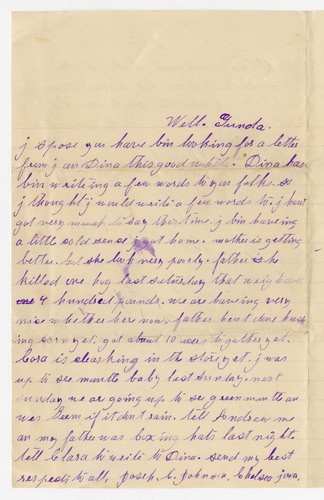 Well. Gunda.
j spose you have bin looking for a letter
from j an Dina this good while. Dina has
bin writeing a few words to your folks. so
j thought j would write a few words to. j hant
got very much to say this time. j bin haveing
a little cold sense j got home. mother is getting
better. but she look very poorly. father is he
killed one hog last saturday that weighead
4 hundred pounds. we are haveing very
nise whether here now, father hent done husk
ing corn yet. got about 10 acers to gather yet.
Cora is clearking in the store yet. j was
up to see marths baby last Sunday. next
sunday we are going up to see green mountan
was Geem if it dont rain. tell Andrew me
an my father was boxing hats last night.
tell Clara to write to Dina. send my best
respects to all. Joseph. C. Johnson, Chelsea jowa.